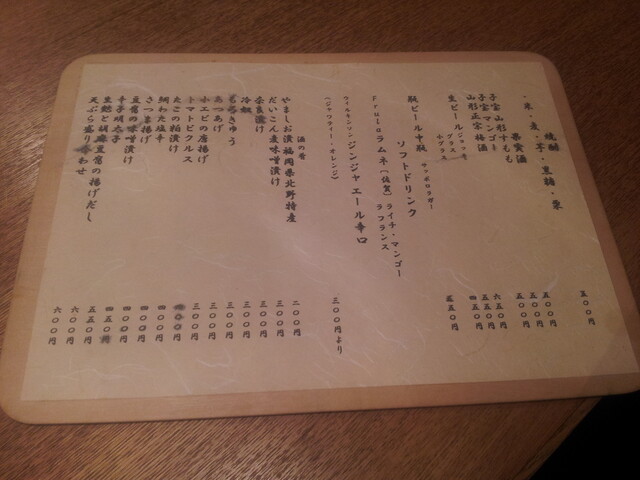 焼酎
・米・麦・芋・黒糖・栗 五〇〇円
果実酒
子宝 山形すもも 五〇〇円
子宝 マンゴー 五〇〇円
山形正宗 梅酒 五〇〇円
生ビール ジョッキ 六五〇円
グラス 五五〇円
小グラス 四五〇円
瓶ビール 中瓶 サッポロラガー 五五〇円
ソフトドリンク
Frulaラムネ〔佐賀〕 ライチ・マンゴー
ラフランス
ウィルキンソン ジンジャエール 辛口
三〇〇円より
酒の肴
やましお漬 福岡県北野特産 二〇〇円
だいこん麦味噌漬け 三〇〇円
奈良漬け 三〇〇円
冷奴 三〇〇円
もろきゅう 三〇〇円
あつあげ 三〇〇円
小エビの唐揚げ 三〇〇円
トマトピクルス
たこの粕漬け 四〇〇円
鯛わた塩辛 四〇〇円
さつま揚げ 四〇〇円
豆腐の味噌漬け 四〇〇円
辛子明太子
生麩と胡麻豆腐の揚げだし 六〇〇円
天ぷら盛り合わせ 六〇〇円